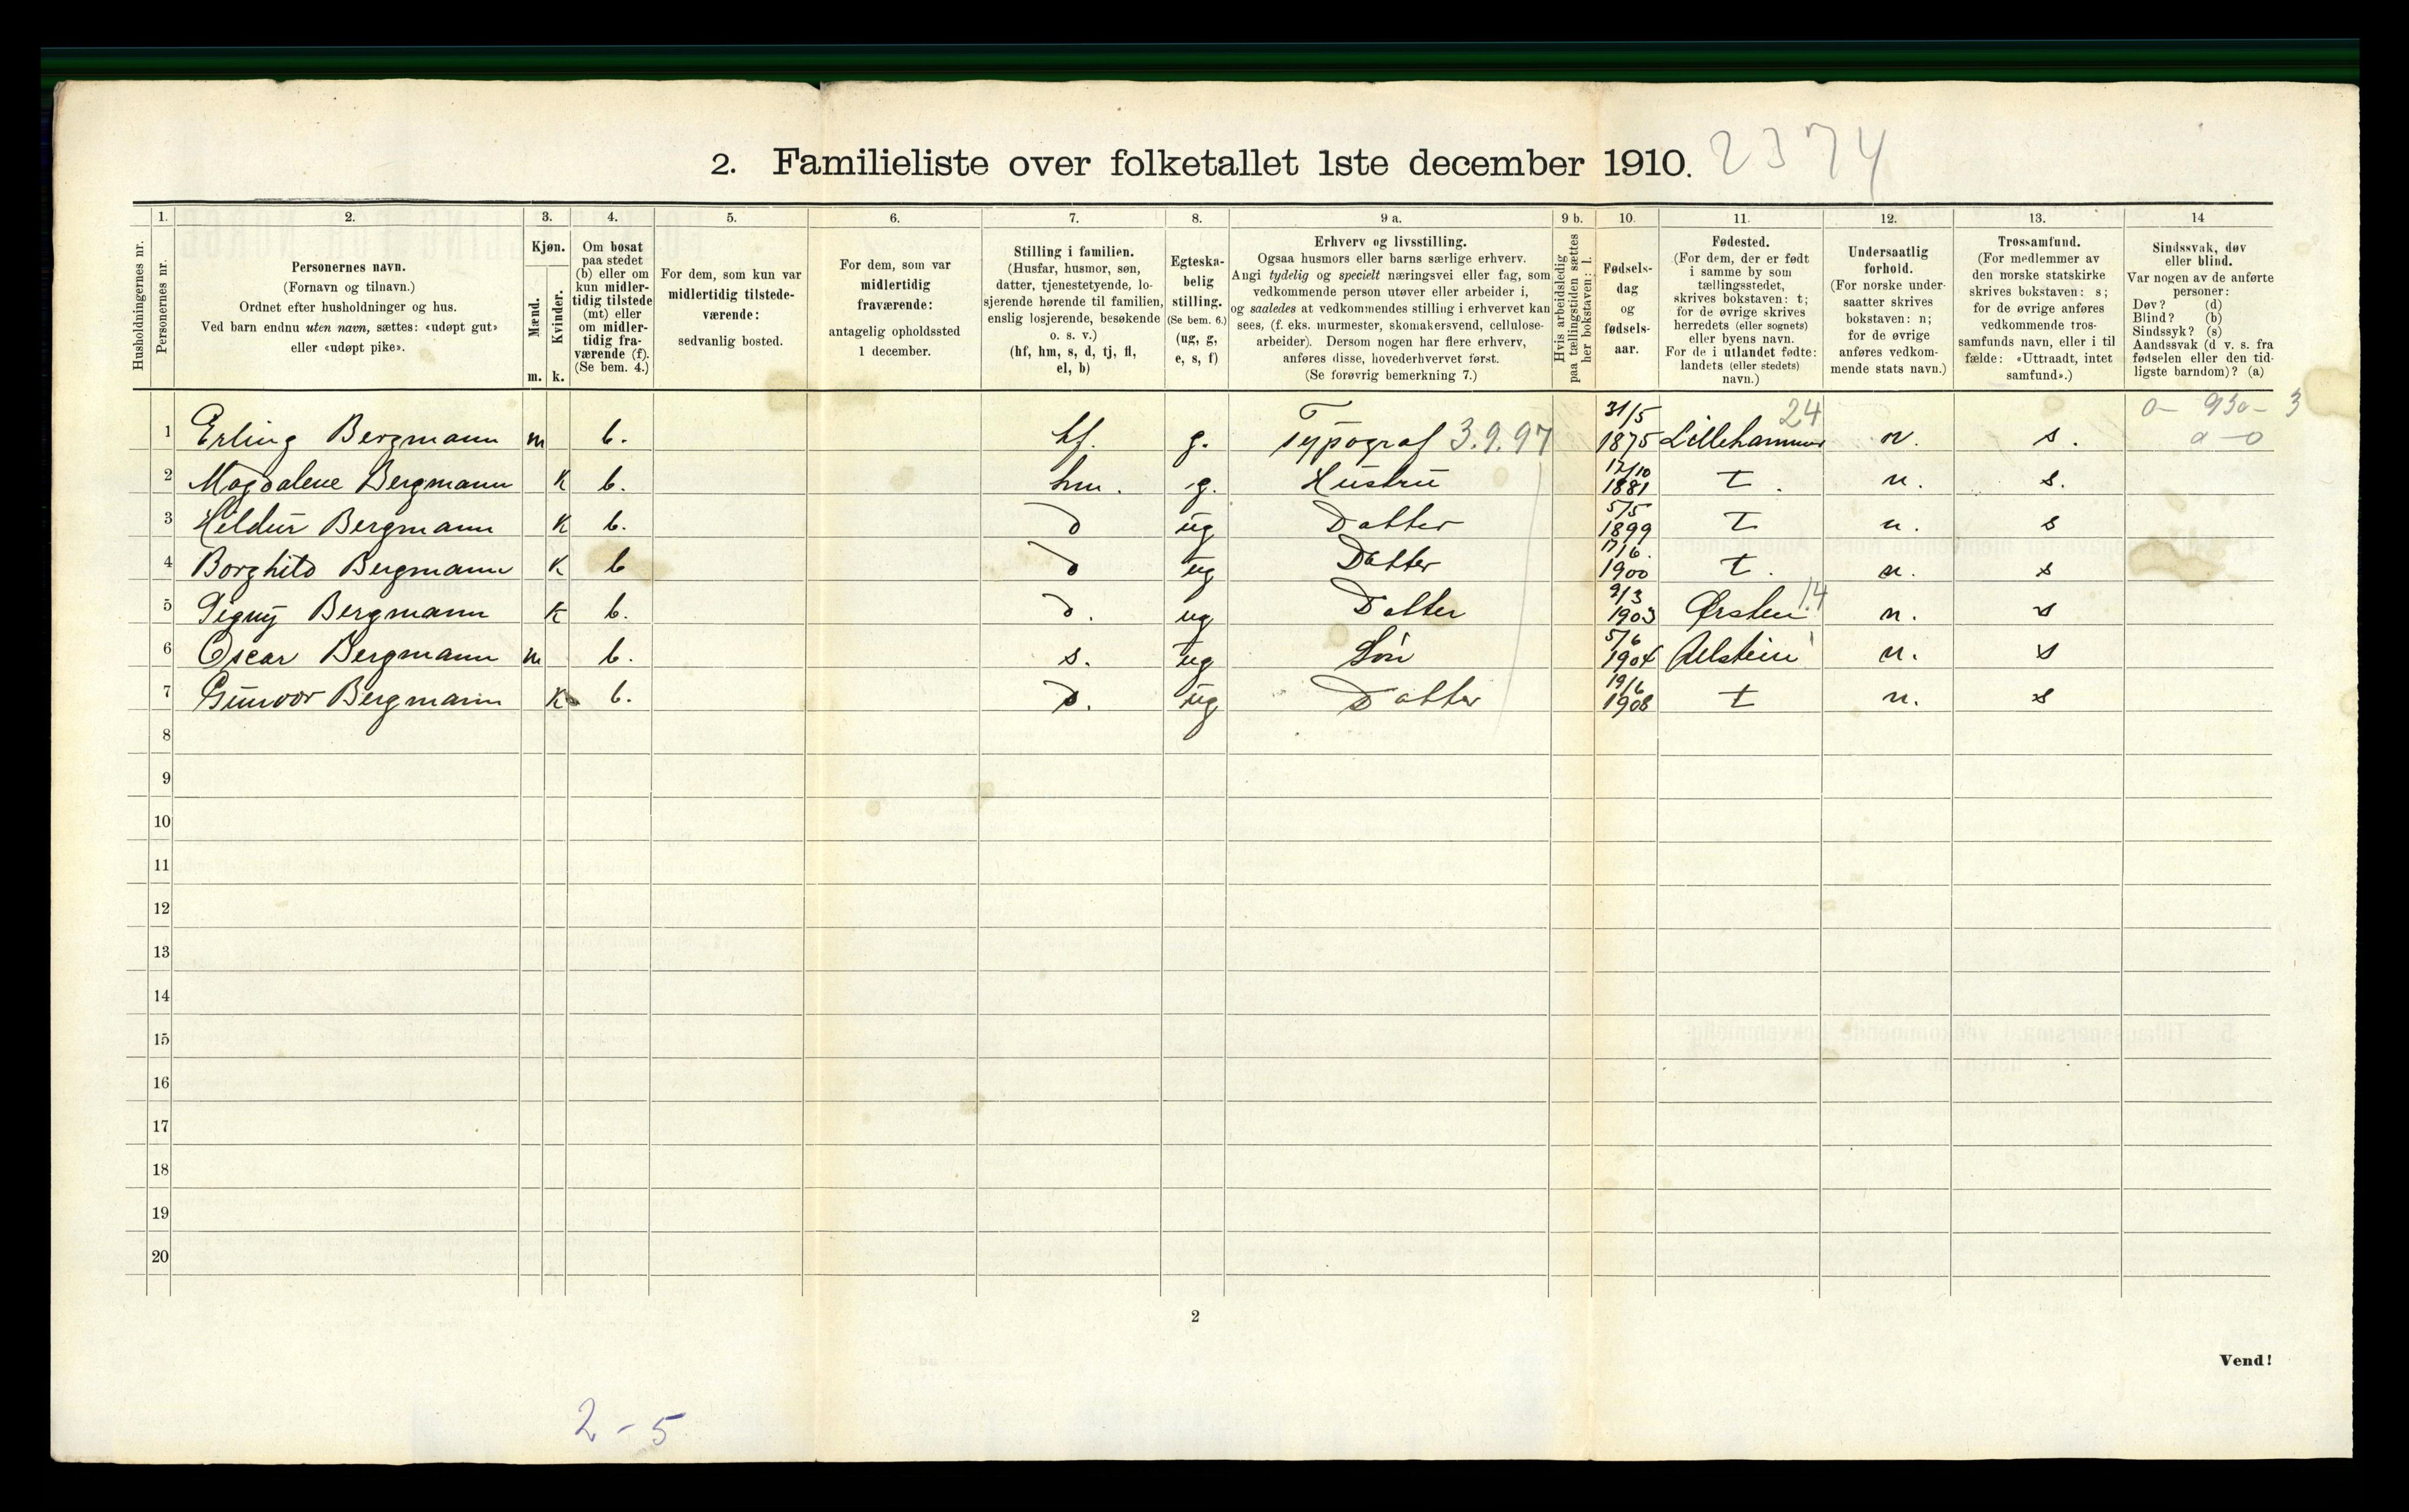 2. Familieliste over folketallet 1ste december 1910. 2374
1. 2. 3. 4. 5. 6. 7. 8. 9 a. 9 b. 10. 11. 12. 13. 14
Husholdningernes nr.
Personernes nr.
Personernes navn.
(Fornavn og tilnavn.)
Ordnet efter husholdninger og hus.
Ved barn endnu uten navn, sættes: «udøpt gut»
eller «udøpt pike».
Kjøn.
Mænd.
Kvinder.
m. k.
Om bosat
paa stedet
(b) eller om
kun midler-
tidig tilstede
(mt) eller
om midler-
tidig fra-
værende (f).
(Se bem. 4.)
For dem, som kun var
midlertidig tilstede-
værende:
sedvanlig bosted.
For dem, som var
midlertidig
fraværende:
antagelig opholdssted
1 december.
Stilling i familien.
(Husfar, husmor, søn,
datter, tjenestetyende, lo-
sjerende hørende til familien,
enslig losjerende, besøkende
o. s. v.)
(hf, hm, s, d, tj, fl,
el, b)
Egteska-
belig
stilling.
(Se bem. 6.)
(ug, g,
e, s, f)
Erhverv og livsstilling.
Ogsaa husmors eller barns særlige erhverv.
Angi tydelig og specielt næringsvei eller fag, som
vedkommende person utøver eller arbeider i,
og saaledes at vedkommendes stilling i erhvervet kan
sees, (f. eks. murmester, skomakersvend, cellulose-
arbeider). Dersom nogen har flere erhverv,
anføres disse, hovederhvervet først.
(Se forøvrig bemerkning 7.)
Hvis arbeidsledig
paa tællingstiden sættes
her bokstaven: l.
Fødsels-
dag
og
fødsels-
aar.
Fødested.
(For dem, der er født
i samme by som
tællingsstedet,
skrives bokstaven: t;
for de øvrige skrives
herredets (eller sognets)
eller byens navn.
For de i utlandet fødte:
landets (eller stedets)
navn.)
Undersaatlig
forhold.
(For norske under-
saatter skrives
bokstaven: n;
for de øvrige
anføres vedkom-
mende stats navn.)
Trossamfund.
(For medlemmer av
den norske statskirke
skrives bokstaven: s;
for de øvrige anføres
vedkommende tros-
samfunds navn, eller i til-
fælde: «Uttraadt, intet
samfund».)
Sindssvak, døv
eller blind.
Var nogen av de anførte
personer:
Døv? (d)
Blind? (b)
Sindssyk? (s)
Aandssvak (d v. s. fra
fødselen eller den tid-
ligste barndom)? (a)
1 Erling Bergmann m b. hf. g. Typograf 3.9.97 31/5 1875 Lillehammer 24 n. s. 0 - 930 - 3
0 - 0
2 Magdalene Bergmann K b. hm. g. Hustru 17/10 1881 t. n. s.
3 Hildur Bergmann K b. d ug Datter 5/5 1899 t n. s
4 Borghild Bergmann K b d ug Datter 17/6. 1900 t. n. s
5 Signy Bergmann K b. d. ug Datter 9/3 1903 Ørsten 14 n. s
6 Oscar Bergmann m b. s. ug Søn 5/6 1904 n. s
7 Gunvor Bergmann K b. d. ug Datter 19/6 1908 t n. s
8
9
10
11
12
13
14
15
16
17
18
19
20
2
Vend!
2 - 5